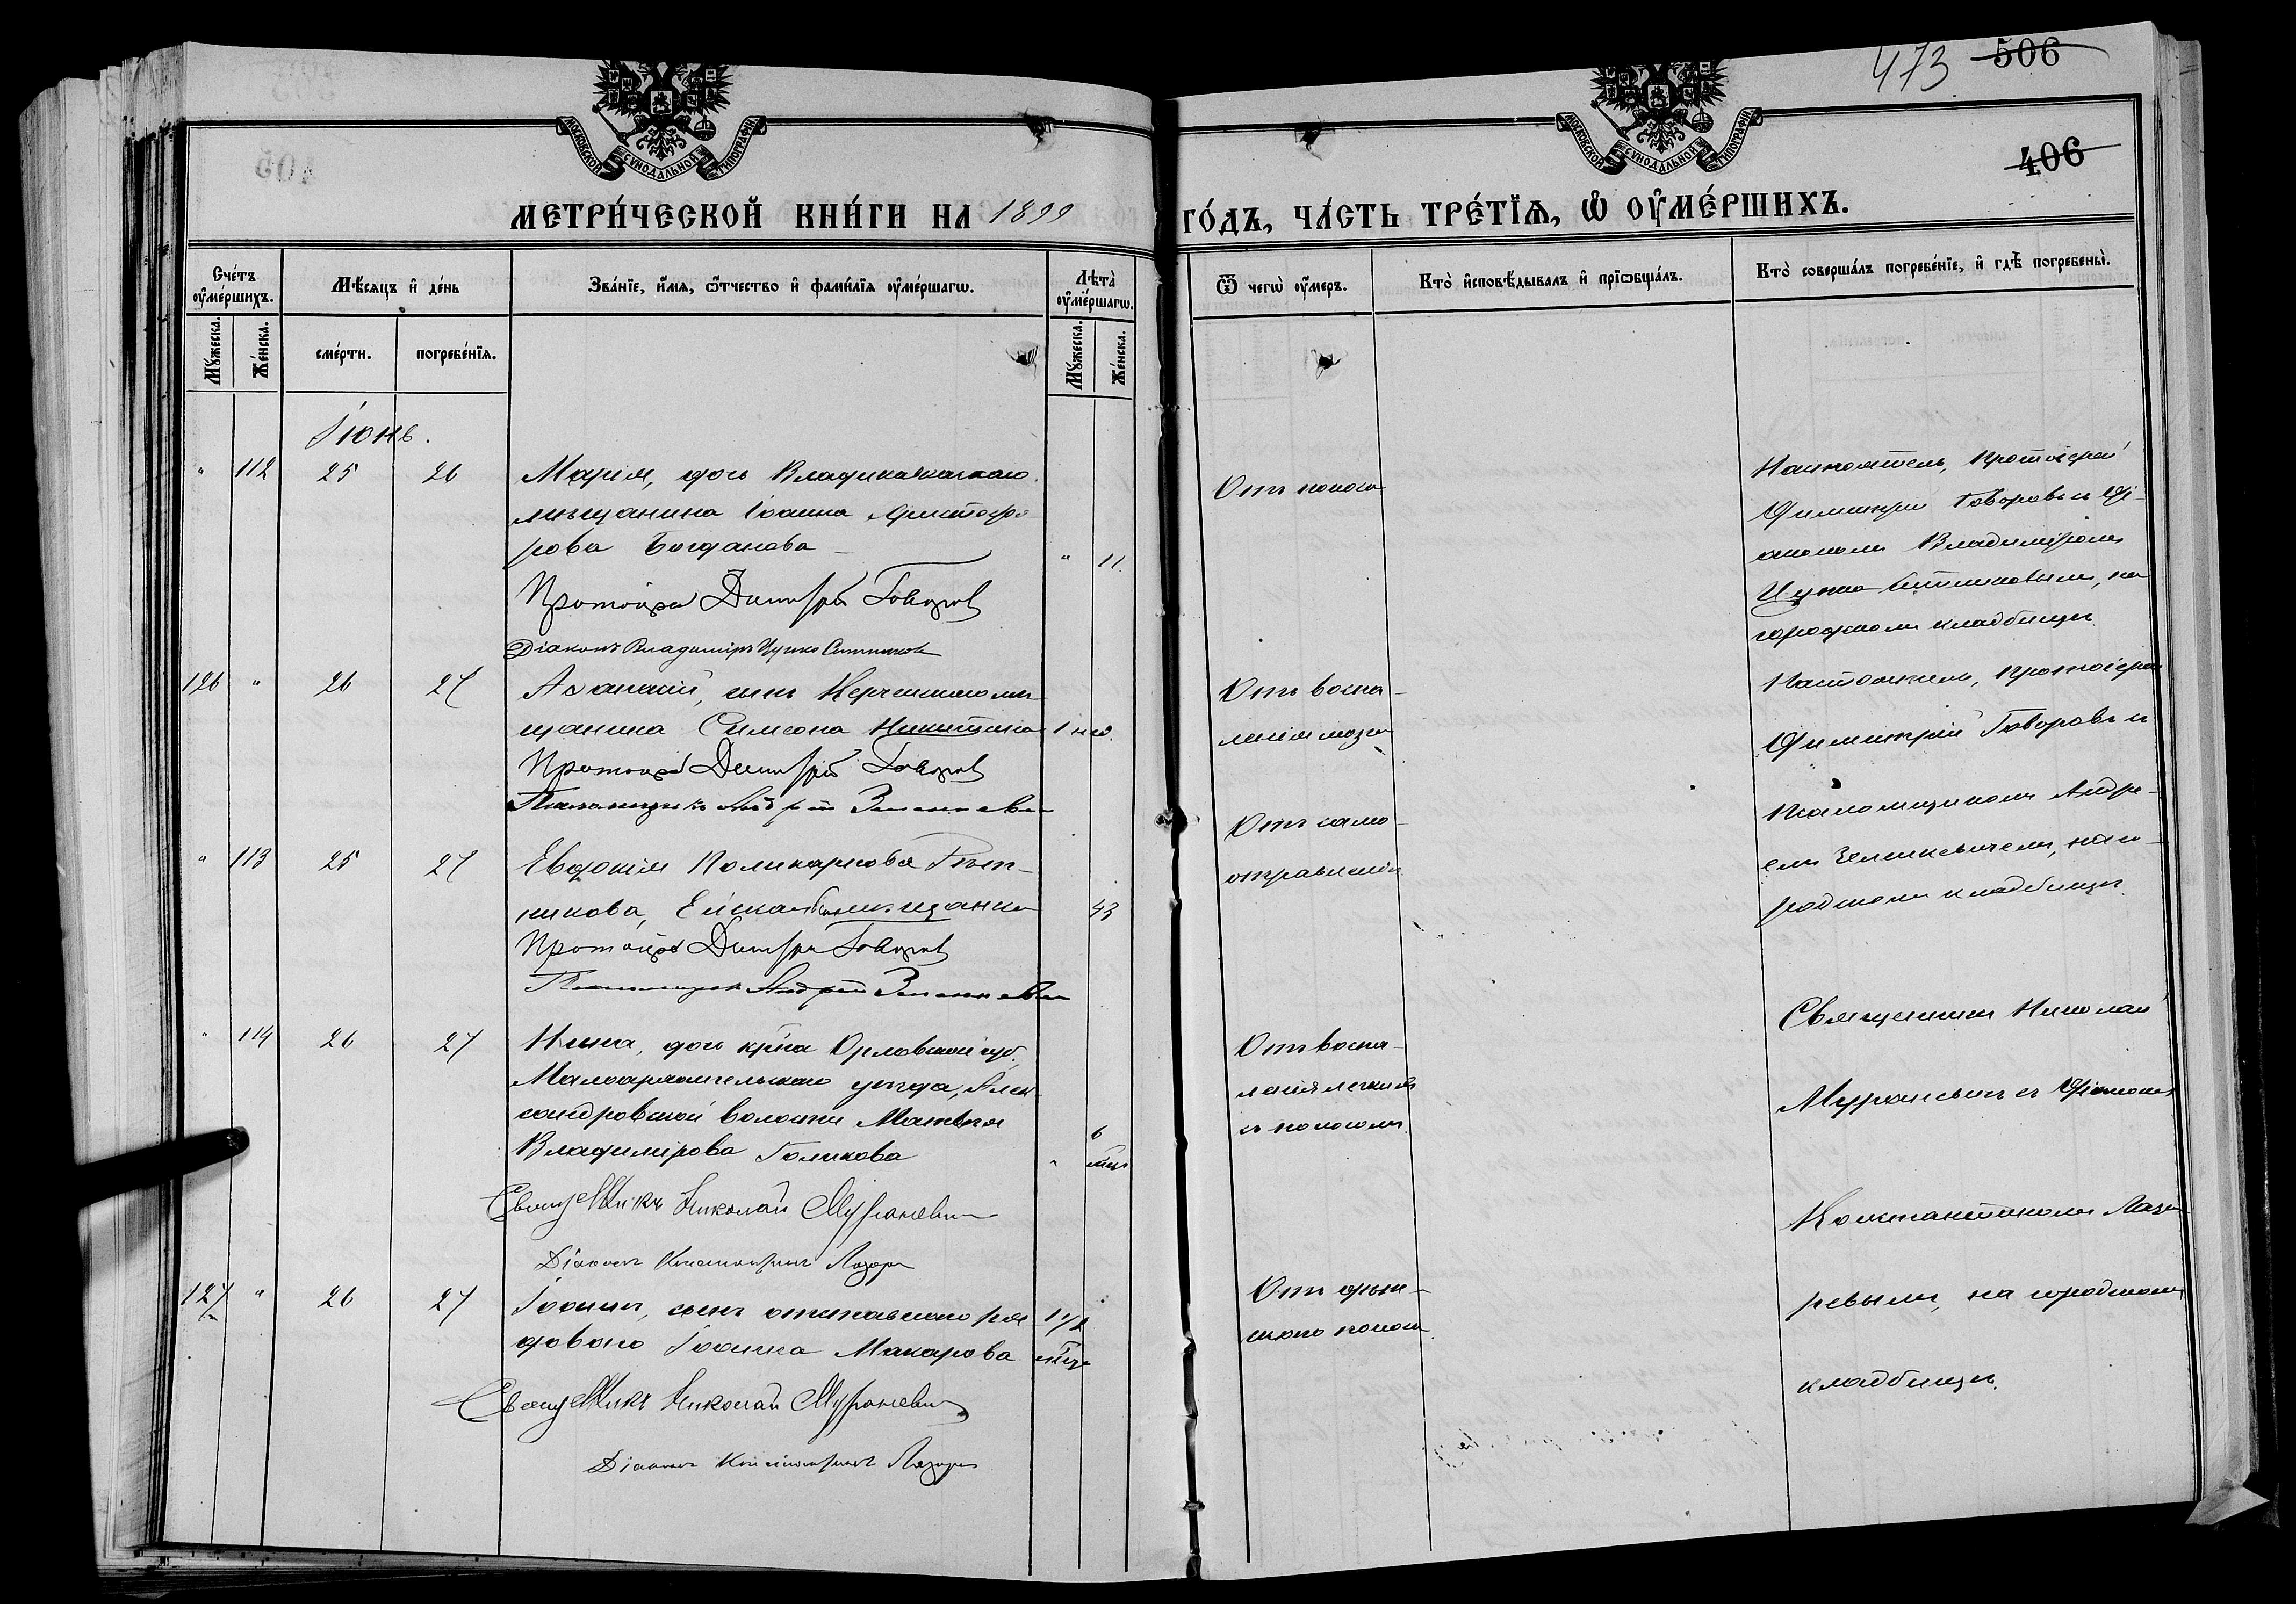 473 506
406
МОСКОВСКОЙ СѴНОДАЛЬНОЙ ТИПОГРАФІИ
МОСКОВСКОЙ СѴНОДАЛЬНОЙ ТИПОГРАФІИ
МЕТРИ́ЧЕСКОЙ КНИ́ГИ НА 1899 ГО́ДЪ, ЧА́СТЬ ТРЕ́ТЇѦ, Ѿ ОУ҆МЕ́РШИХЪ.
Сче́тъ оу҆ме́ршихъ.
Мꙋ́жеска.
Же́нска.
Мѣ́сяцъ и҆ де́нь
сме́рти.
погребе́нїѧ.
Зва́нїе, и҆́мѧ, ѻ҆́тчество и҆ фами́лїѧ оу҆ме́ршагѡ.
Лѣта̀ оу҆ме́ршагѡ.
Мꙋ́жеска.
Же́нска.
Ѿ чегѡ̀ оу҆́меръ.
Кто̀ и҆сповѣ́дывалъ и҆ прїѡбща́лъ.
Кто̀ соверша́лъ погребе́нїе, и҆ гдѣ̀ погребены̀.
Іюнь.
" 112 25 26 Марія, дочь Владикавказскаго
мѣщанина Іоанна Христофо-
рова Богданова " 11.
Протоіерей Димитрій Говоровъ
Діаконъ Владиміръ Цушко Ситниковъ
Отъ поноса
Настоятель, протоіерей
Димитрій Говоровъ и ді-
акономъ Владиміромъ
Цушко Ситниковымъ, на
городскомъ кладбищѣ.
126 " 26 27 Аѳанасій, сынъ мѣ-
щанина Симеона Никитина 1 нед.
Протоіерей Димитрій Говоровъ
Псаломщикъ Андрей Зеленкевичъ
Отъ воспа-
ленія мозга
Настоятель, протоіерей
Димитрій Говоровъ и
псаломщикомъ Андре-
емъ Зеленкевичемъ, на го-
родскомъ кладбищѣ.
" 113 25 27 Евдокія Поликарпова
Ейская мѣщанка 43
Протоіерей Димитрій Говоровъ
Псаломщикъ Андрей Зеленкевичъ
Отъ само-
отравленія
" 114 26 27 Нина, дочь кр-на Орловской губ.
Малоархангельскаго уѣзда, Алек-
сандровской волости Матвѣя
Владимірова Голикова " 6 мѣс
Священникъ Николай Мурганевичъ
Діаконъ Константинъ Лазаревъ
Отъ воспа-
ленія легкихъ
съ поносомъ.
Священникъ Николай
Мурганевичъ съ діакономъ
Константиномъ Лаза-
ревымъ, на городскомъ
кладбищѣ.
127 " 26 27 Іоаннъ, сынъ отставного ря-
дового Іоанна Макарова 1 1/2 мѣс
Священникъ Николай Мурганевичъ
Діаконъ Константинъ Лазаревъ
Отъ дѣт-
скаго поноса.